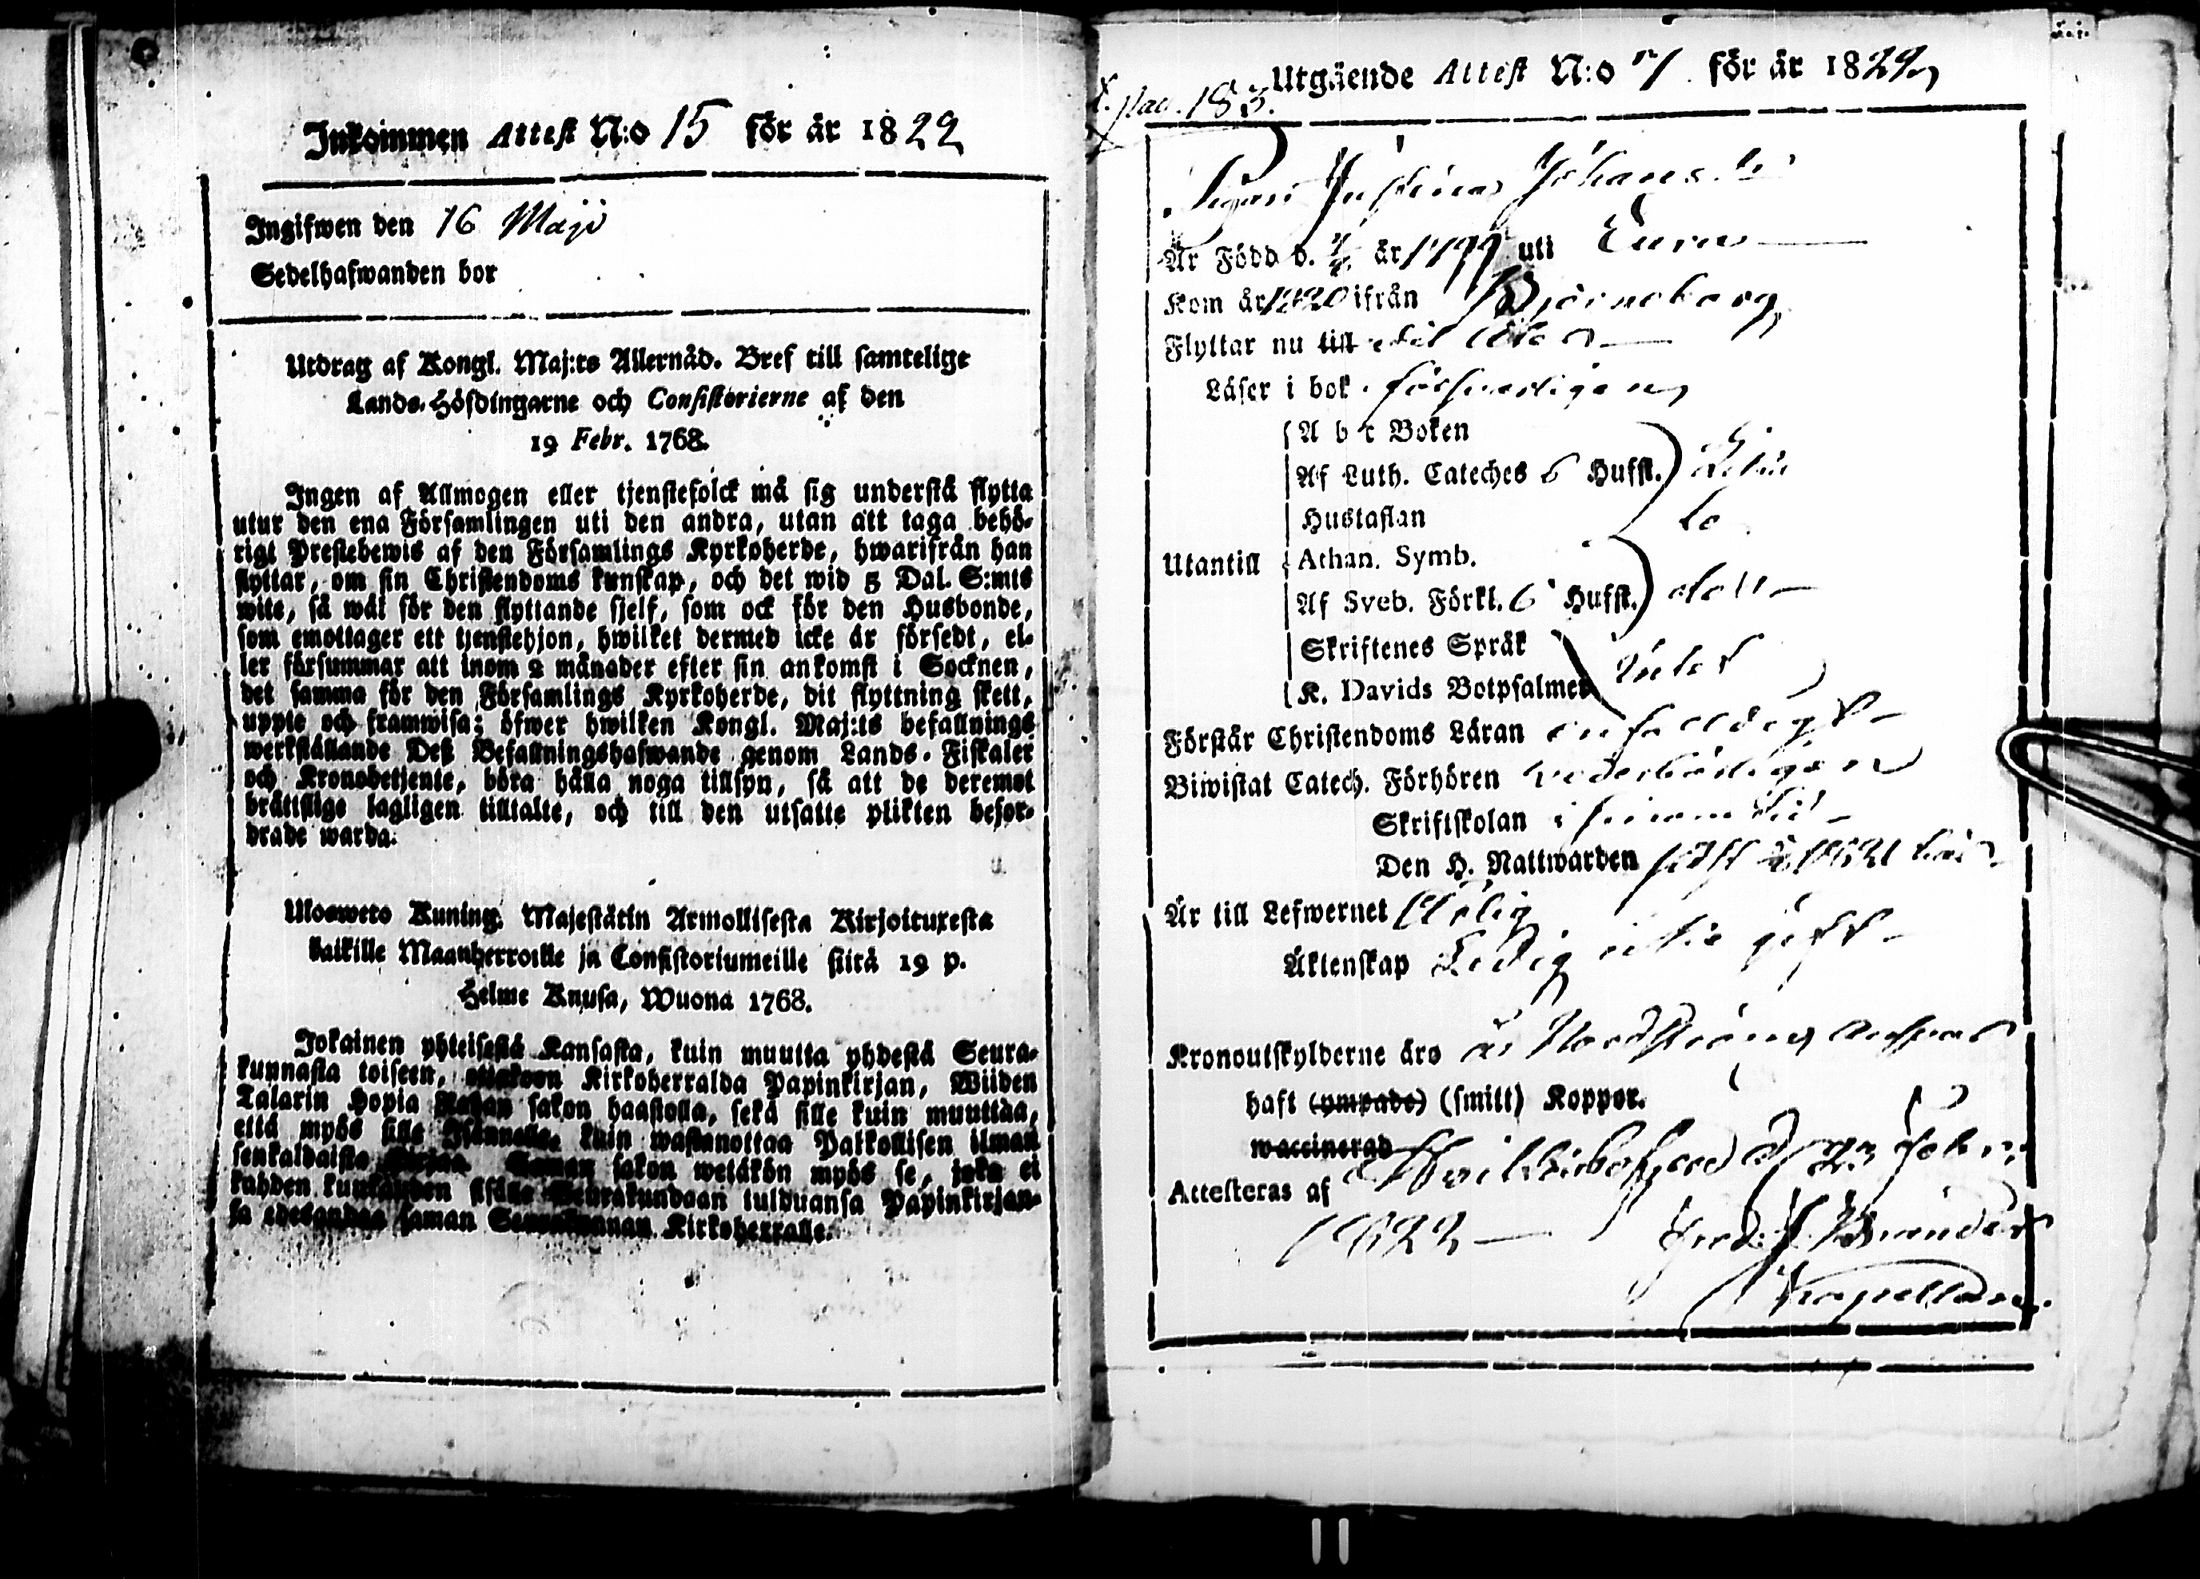 Inkommen Attest N:o 15 för år 1822
Ingifwen den 16 Maji
Sedelhafwanden bor
Utdrag af Kongl. Maj:ts Allernåd. Bref till samtelige
Lands-Höfdingarne och Consistorierne af den
19 Febr. 1768.
Ingen af Allmogen eller tjenstefolck må sig understå flytta
utur den ena Församlingen uti den andra, utan att taga behö-
rigt Prestebewis af den Församlings Kyrkoherde, hwarifrån han
flyttar, om sin Christendoms kunskap, och det wid 5 Dal. S:mts
wite, så wäl för den flyttande sjelf, som ock för den Husbonde,
som emottager ett tjenstehjon, hwilket dermed icke är försedt, el-
ler försummar att inom 2 månader efter sin ankomst i Socknen,
det samma för den Församlings Kyrkoherde, dit flyttning skett,
uppte och framwisa; öfwer hwilken Kongl. Maj:ts befallnings
werkställande Deß Befallningshafwande genom Lands-Fiskaler
och Kronobetjente, böra hålla noga tillsyn, så att de deremot
brättslige lagligen tilltalte, och till den utsatte plikten befor-
drade warda.
Ulosweto Kuning. Majestätin Armollisesta Kirjoituxesta
kaikille Maanherroille ja Consistoriumeille siitä 19 p.
Helme Knusa, Wuona 1768.
Jokainen yhteisestä Kansasta, kuin muutta yhdestä Seura-
kunnasta toiseen, ottakoon Kirkoherralda Papinkirjan, Wiiden
Talarin Hopia Rahan sakon haastolla, sekä sille kuin muuttaa,
että myös sille Isännälle, kuin wastanottaa Palkollisen ilman
senkaldaista Kirjaa. Saman sakon wetäkön myös se, joka ei
kahden kuukauden sisälle Seurakundaan tulduansa Papinkirjan-
sa edesandaa saman Seurakunnan Kirkoherralle.
pag. 183.
Utgående Attest N:o 7 för år 1822
Pigan Justina Johansdr
Är Född d. är 1799 uti Eura
Kom år 1820 ifrån Björneborg
Flyttar nu till
Läser i bok försvarligen
A b c Boken
Af Luth. Cateches 6 Hufst.
Hustaflan
Utantill Athan. Symb.
Af Sveb. Förkl. 6 Hufst.
Skriftenes Språk
K. Davids Botpsalmer intet
Förstår Christendoms Läran enfalldigt
Biwistat Catech. Förhören wederbörligen
Skriftskolan i sinom tid
Den H. Nattwarden sidst 1821 här
Är till Lefwernet ärlig
Äktenskap Ledig icke gift
Kronoutskylderne äro
haft (ympade) (smitt) Koppor.
waccinerad
Attesteras af d. 23 Febr.
1822
Capellan.